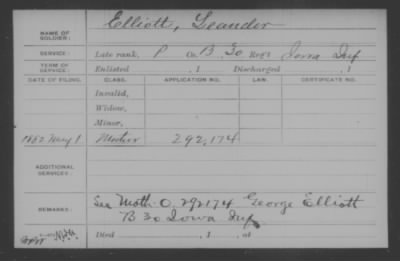 Elliott, Leander
NAME OF SOLDIER:
SERVICE: Late rank, P Co. B 30 Reg't Iowa Inf
TERM OF SERVICE: Enlisted , 1 Discharged , 1
DATE OF FILING. CLASS. APPLICATION NO. LAW. CERTIFICATE NO.
Invalid,
Widow,
Minor,
1882 May 1 Mother 292,174
ADDITIONAL SERVICES:
REMARKS: See Moth. O. 292174 George Elliott
B 30 Iowa Inf
Died , 1 , at